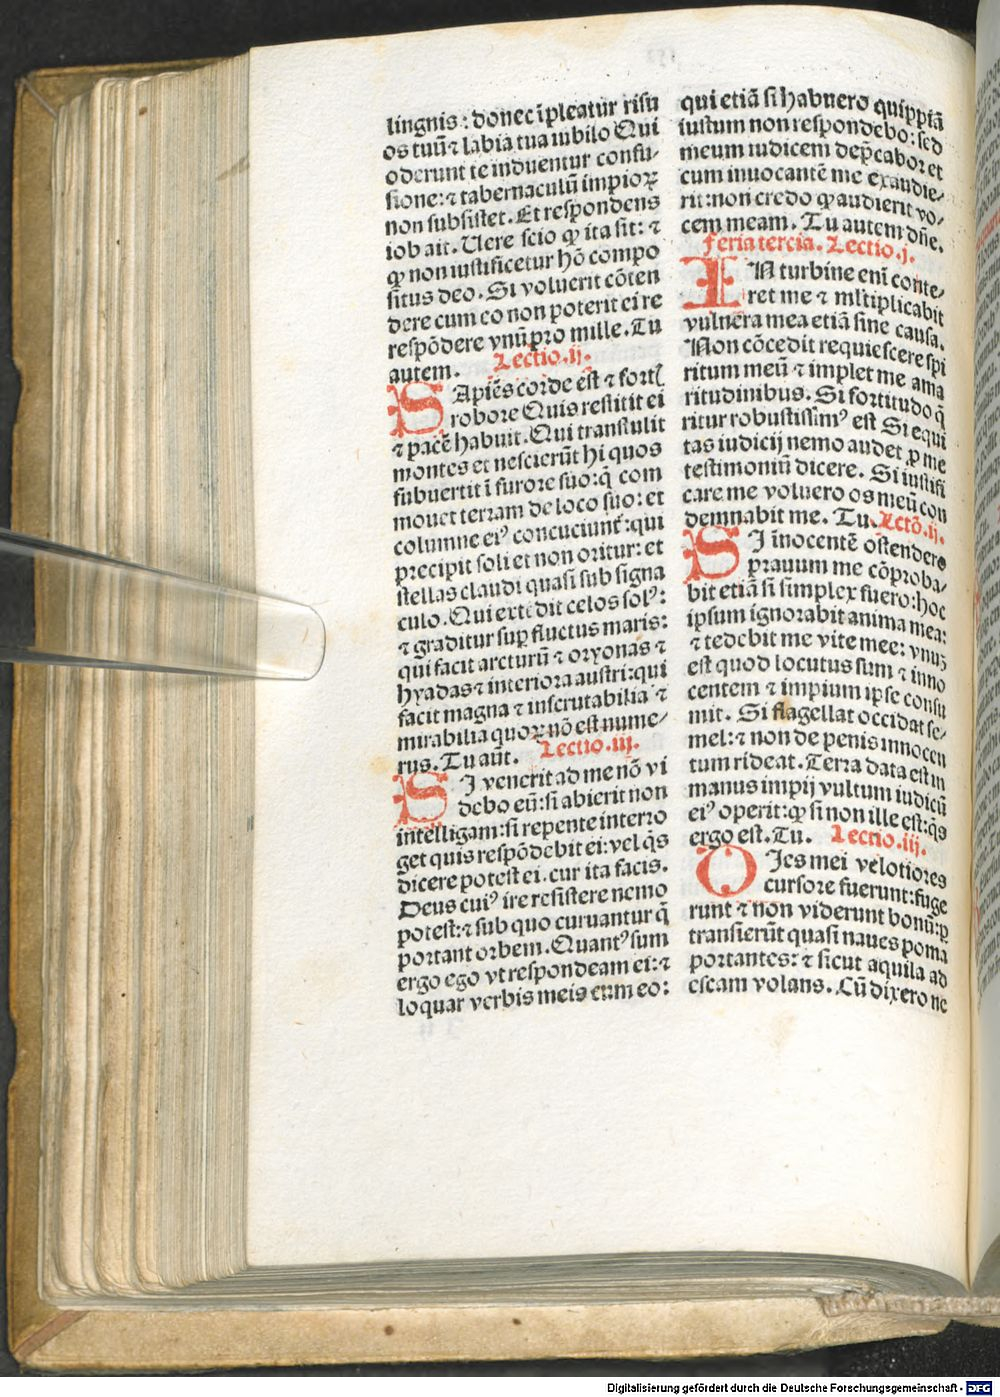 lingnis: donec ĩpleatur risu
os tuũ ⁊ labia tua iubilo Qui
oderunt te induentur confu-
sione: ⁊ tabernaculũ impioꝝ
non subsistet. Et respondens
iob ait. Uere scio ꝙ ita sit: ⁊
ꝙ non iustificetur hõ compo
situs deo. Si voluerit cõten
dere cum eo non poterit ei re
respõdere vnũ pro mille. Tu
autem. Lectio .ij.
SApiẽs corde est ⁊ forti
robore Quis restitit ei
⁊ pacẽ habuit. Qui transtulit
montes et nescierũt hi quos
subuertit ĩ furore suo: q̃ com
mouet terram de loco suo: et
columne eiꝰ concuciunť: qui
precipit soli et non oritur: et
stellas claudi quasi sub signa
culo. Qui extẽdit celos solꝰ:
⁊ graditur suꝑ fluctus maris:
qui facit arcturũ ⁊ oryonas ⁊
hyadas ⁊ interiora austri: qui
facit magna ⁊ inscrutabilia ⁊
mirabilia quoꝝ nõ est nume-
rus. Tu aũt. Lectio .iij.
SI venerit ad me nõ vi
debo eũ: si abierit non
intelligam: si repente interro
get quis respõdebit ei: vel q̃s
dicere potest ei. cur ita facis.
Deus cuiꝰ ire resistere nemo
potest: ⁊ sub quo curuantur q̃
portant orbem. Quantꝰ sum
ergo ego vt respondeam ei: ⁊
loquar verbis meis cum eo:
qui etiã si habuero quippiã
iustum non respondebo: sed
meum iudicem dep̃cabor et
cum inuocantẽ me exaudie-
rit: non credo ꝙ audierit vo-
cem meam. Tu autem dñe.
feria tercia. Lectio .j.
IN turbine enĩ conte-
ret me ⁊ mltiplicabit
vulnera mea etiã sine causa.
Non cõcedit requiescere spi
ritum meũ ⁊ implet me ama
ritudinibus. Si fortitudo q̃
ritur robustissimꝰ est Si equi
tas iudicij nemo audet ꝓ me
testimoniũ dicere. Si iustifi
care me voluero os meũ con
demnabit me. Tu. Lctõ .ij.
SI ĩnocentẽ ostendero
prauum me cõproba-
bit etiã si simplex fuero: hoc
ipsum ignorabit anima mea:
⁊ tedebit me vite mee: vnuʒ
est quod locutus sum ⁊ inno
centem ⁊ impium ipse consu
mit. Si flagellat occidat se-
mel: ⁊ non de penis innocen
tum rideat. Terra data est in
manus impij vultum iudicũ
eiꝰ operit: ꝙ si non ille est: q̃s
ergo est. Tu. Lectio .iij.
DIes mei velotiores
cursore fuerunt: fuge
runt ⁊ non viderunt bonũ: ꝑ
transierũt quasi naues poma
portantes: ⁊ sicut aquila ad
escam volans. Cũ dixero ne
Digitalisierung gefördert durch die Deutsche Forschungsgemeinschaft - DFG